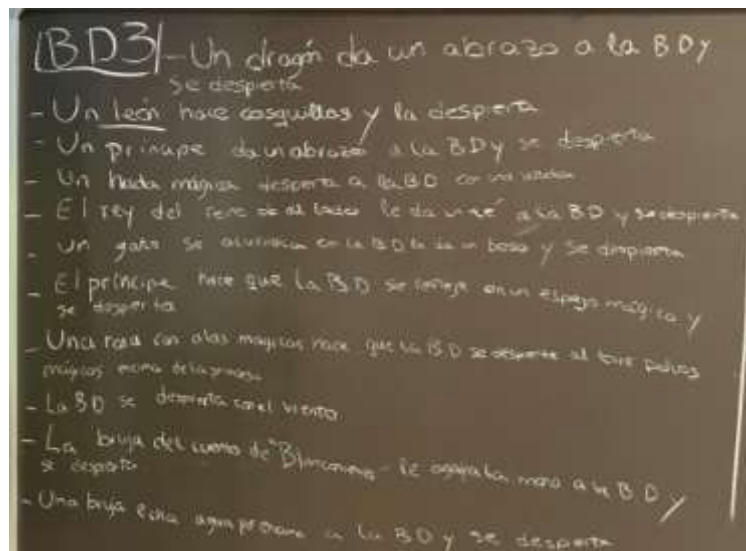 BD3 - Un dragón da un abrazo a la BD y
se despierta
- Un león hace cosquillas y la despierta
- Un príncipe da un abrazo a la BD y se despierta
- Un hada mágica despierta a la BD con una
- El rey del le da a la BD y se despierta
- Un gato se acurruca en la BD le da un beso y se despierta
- El príncipe hace que la BD se refleje en un espejo mágico y
se despierta
- Una rosa con alas mágicas hace que la BD se despierte al polvos
mágicos encima de la
- La BD se despierta con el viento
- La bruja del cuento de "Blancanieves" le agarra la mano a la BD y
se despierta
- Una bruja echa agua a la BD y se despierta